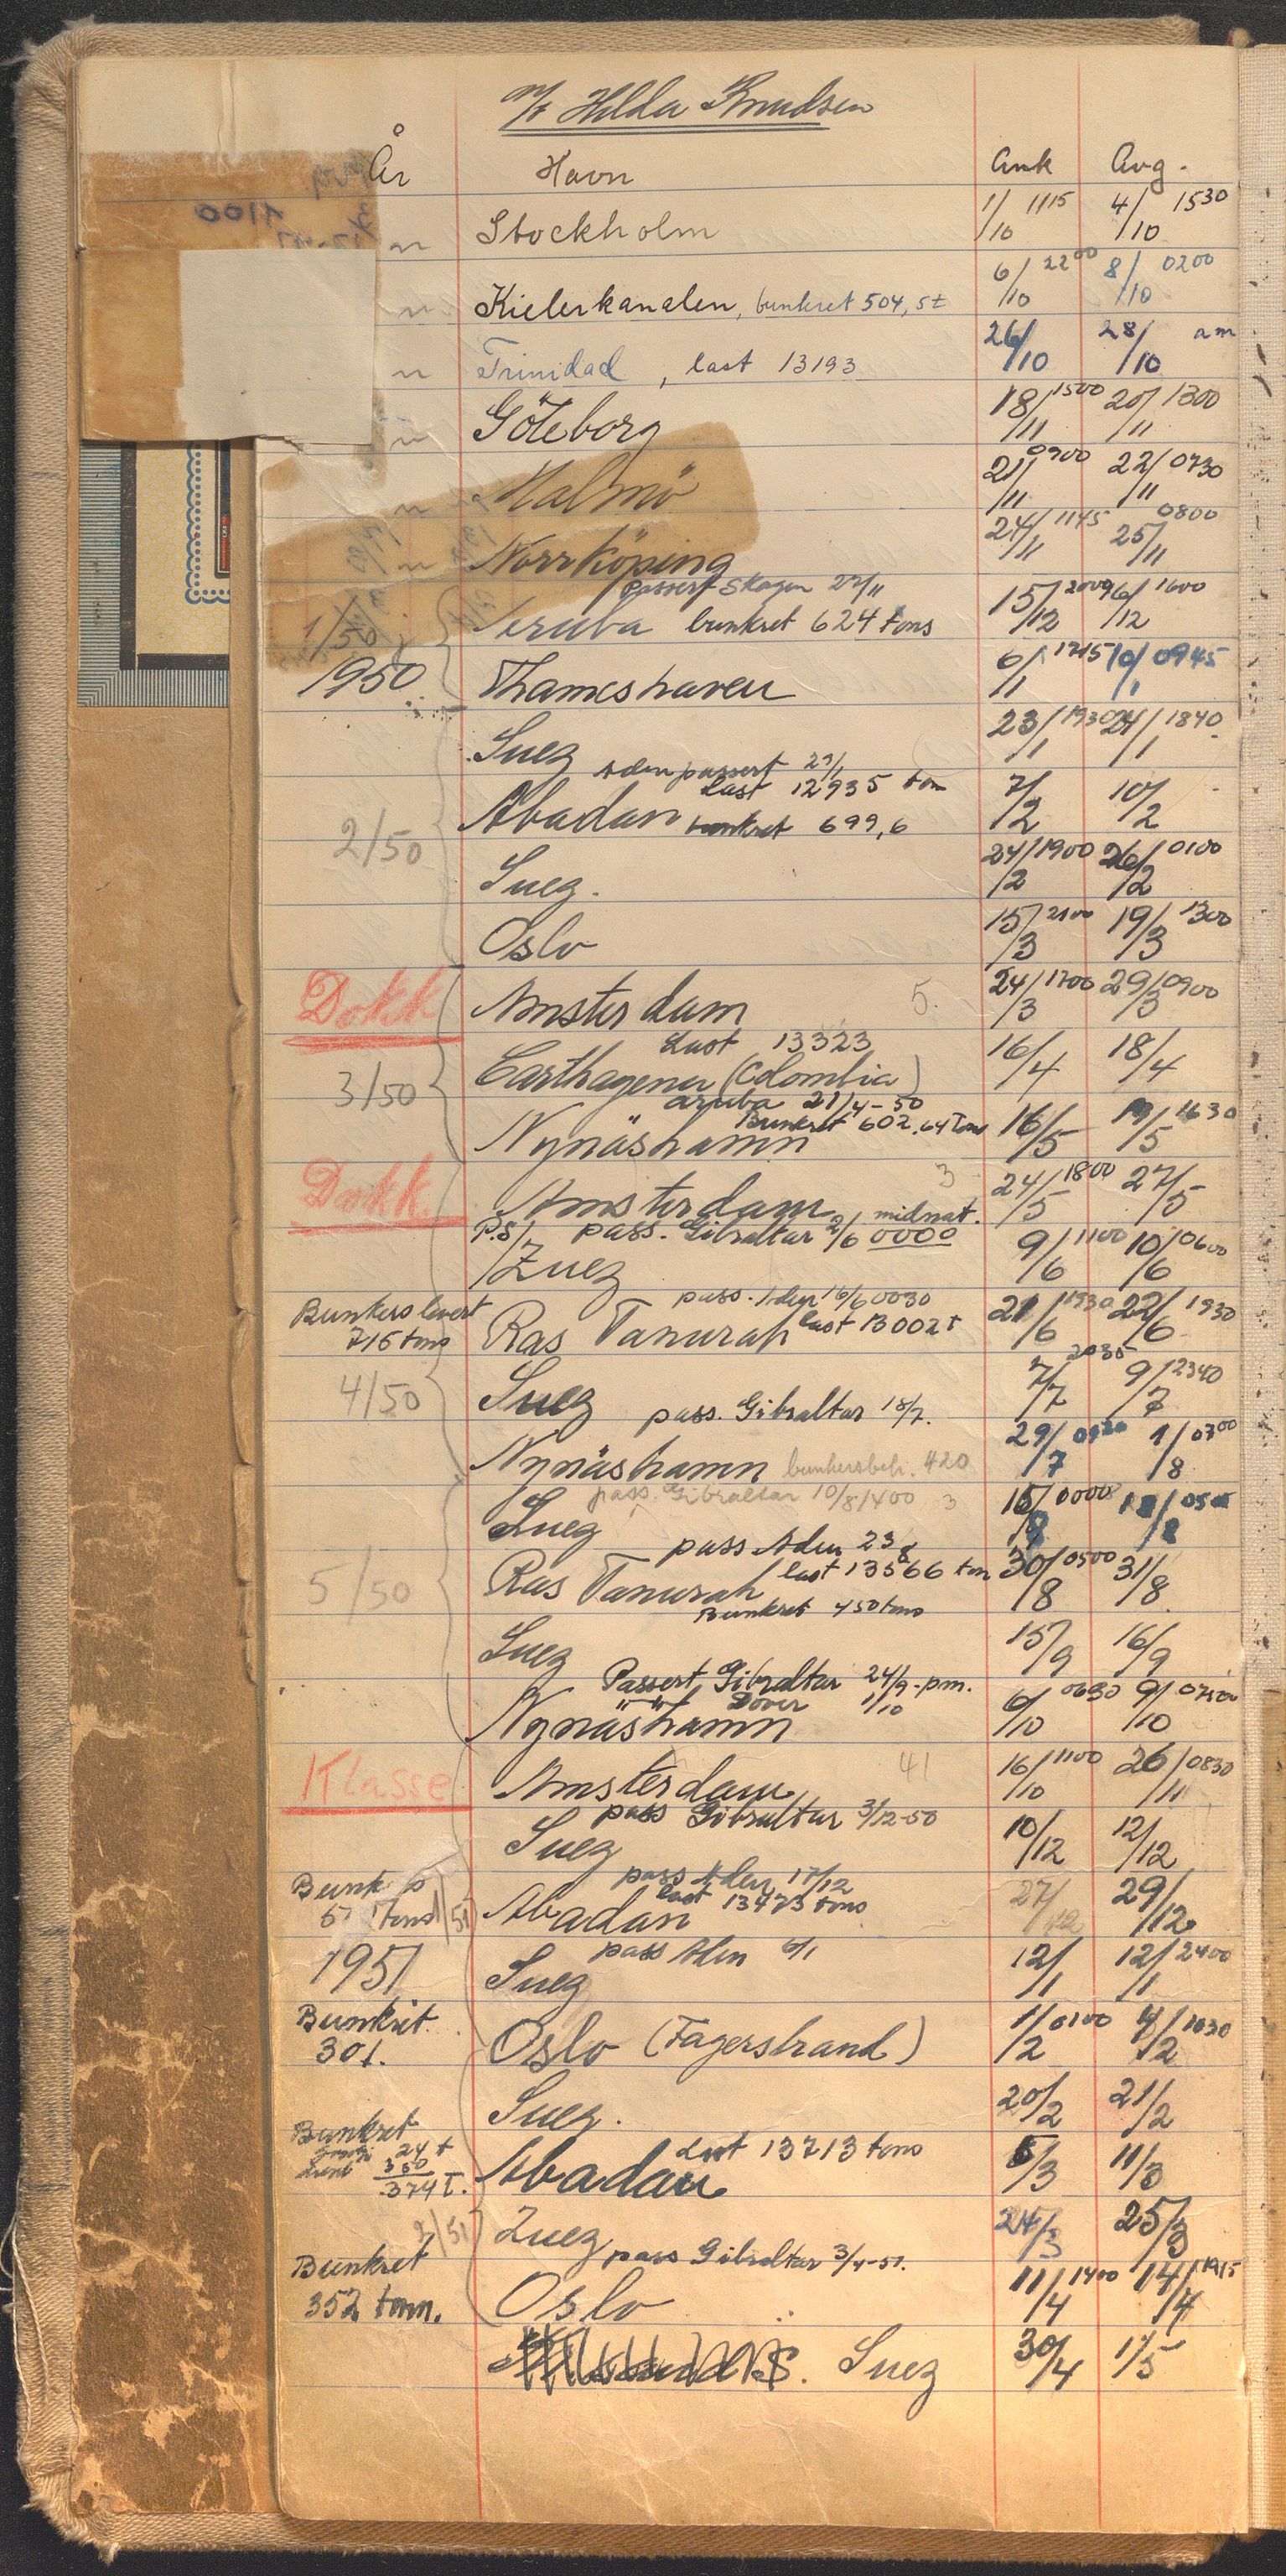 M/T Hilda Knudsen
År Havn Ank Avg.
" Stockholm 1/10 1115 4/10 1530
" Kielerkanalen, bunkret 504,5t 6/10 2200 8/10 0200
" Trinidad, last 13193 26/10 28/10 am
" Göteborg 18/11 1500 20/11 1300
" Malmö 21/11 0900 22/11 0730
" Norrköping 24/11 1145 25/11 0800
passert Skagen 27/11
1/50 Aruba bunkret 624 tons 15/12 2000 16/12 1600
1950 Thameshaven 6/1 1215 10/1 0945
Suez 23/1 1930 24/1 1840
Aden passert 29/1
last 12935 ton
Abadan bunkret 699,6 7/2 10/2
2/50
Suez. 24/2 1900 26/2 0100
Oslo 15/3 2100 19/3 1300
Dokk Amsterdam 5. 24/3 1700 29/3 0900
Last 13323
3/50 Carthagena (Colombia) 16/4 18/4
aruba 21/4-50
Bunkret 602.64 Tons
Nynäshamn 16/5 19/5 1630
Dokk. Amsterdam 3 24/5 1800 27/5
P.S/. pass. Gibraltar 2/6 0000 midnat.
Zuez 9/6 1100 10/6 0600
pass. Aden 16/6 0030
Bunkers levert
716 tons Ras Tanurah last 13002 t 21/6 1930 22/6 1930
4/50 Suez 7/7 2035 9/7 2340
pass. Gibraltar 18/7.
Nynäshamn bunkersbeh. 420 29/7 1/8 0300
pass. Gibraltar 10/8 1400 3
Suez 16/8 0000 18/8
pass Aden 23/8
5/50 Ras Tanurah last 13566 ton 30/8 0500 31/8
Bunkret 450 tons
Suez 15/9 16/9
Passert Gibraltar 24/9-pm.
" " Dover 1/10
Nynäshamn 6/10 0630 9/10
Klasse Amsterdam 41 16/10 1100 26/11 0830
pass Gibraltar 3/12-50
Suez 10/12 12/12
pass Aden 17/12
last 13473 tons
tons Abadan 27/12 29/12
pass Aden 6/1
1951 Suez 12/1 12/1 2400
Bunkret
301. Oslo (Fagerstrand) 1/2 0100 4/2 1030
Suez. 20/2 21/2
Bunkret
24 t
350
374 T.
Last 13713 tons
Abadan 8/3 11/3
2/51 Zuez 24/3 25/3
pass Gibraltar 3/4-51.
Bunkret
352 tonn. Oslo 11/4 1400 14/4 1915
Suez 30/4 1/5